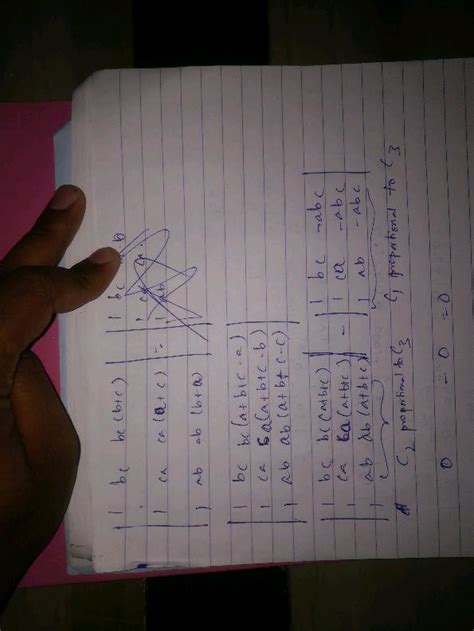 | 1 bc bc(b+c) |
| 1 ca ca(a+c) | =
| 1 ab ab(b+a) |
| 1 bc bc(a+b+c-a) |
| 1 ca ca(a+b+c-b) |
| 1 ab ab(a+b+c-c) |
| 1 bc bc(a+b+c) | | 1 bc -abc |
| 1 ca ca(a+b+c) | - | 1 ca -abc |
| 1 ab ab(a+b+c) | | 1 ab -abc |
C2 proportional to C3 C1 proportional to C3
0 - 0 = 0